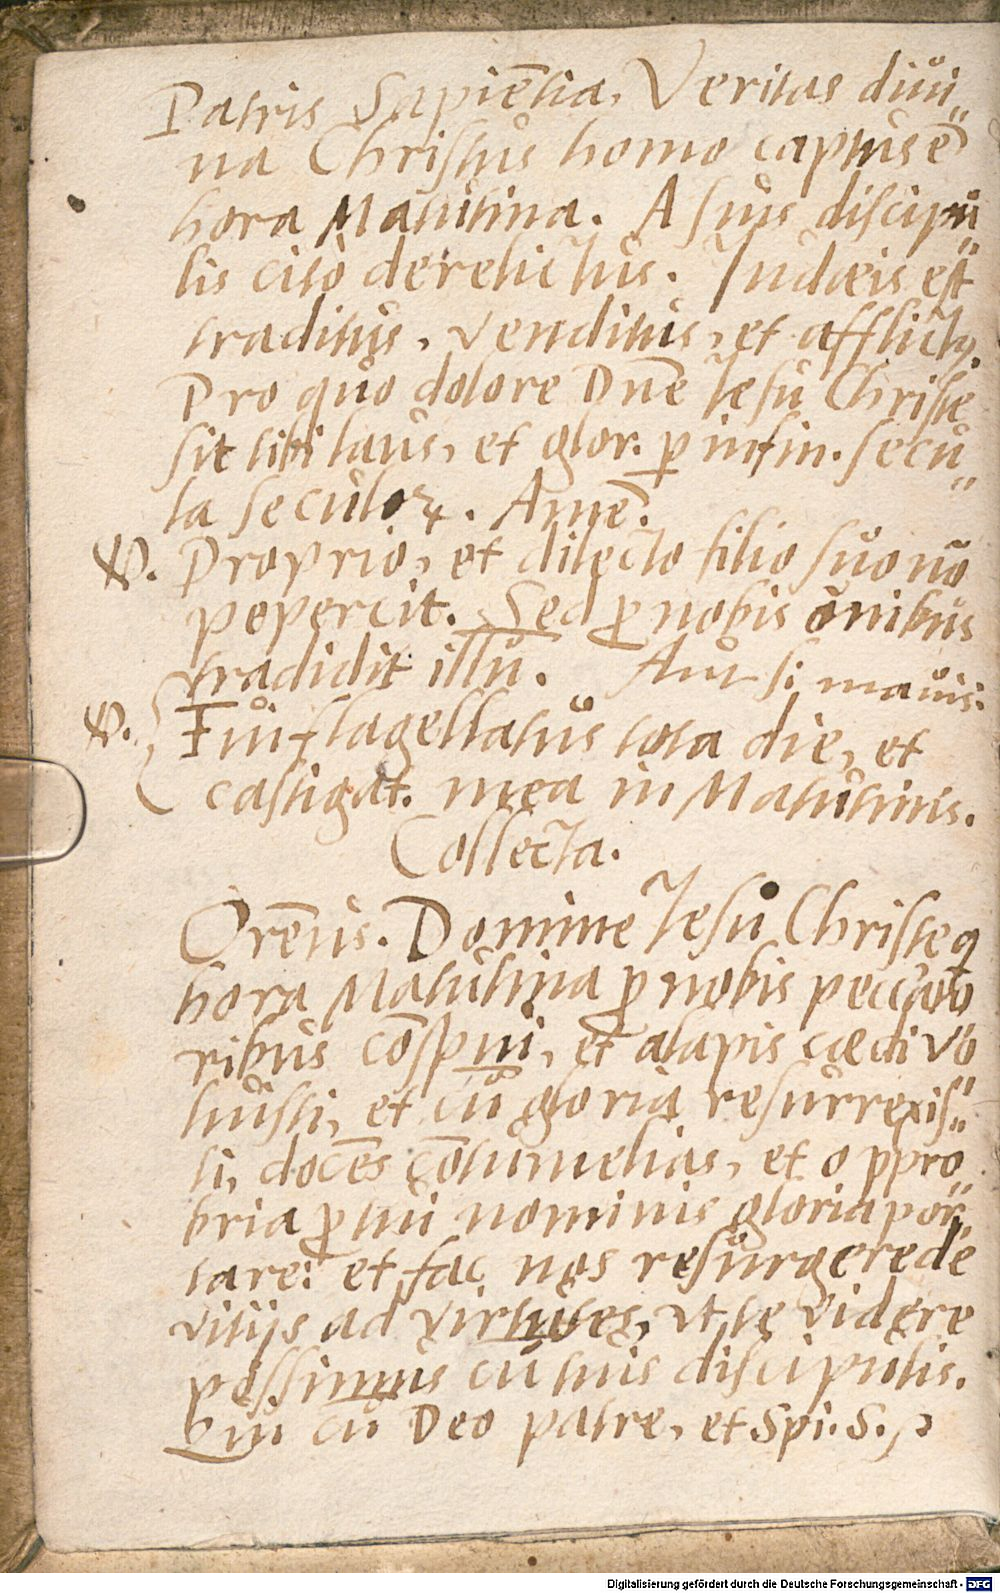 Patris Sapiẽtia, Veritas diui„
na Christus homo captus ẽ
hora Matutina. A suis discipu„
lis citò derelictus. Iudæis est
traditus, venditus, et afflictꝰ.
Pro quo dolore Dñe Iesu Christe
sit tibi laus, et glor. ꝑ infin. secu„
la seculoꝝ. Amẽ.
℣. Proprio, et dilecto filio suo nõ
pepercit. Sed ꝓ nobis õnibus
tradidit illũ. Aut si mauis:
℣. Fui flagellatus tota die, et
castigat. mea in Matutinis.
Collecta.
Orẽus. Domine Iesu Christe q
hora Matutina ꝓ nobis peccato
ribus cõspui, et alapis cædi vo
luisti, et cũ gloria resurrexis„
ti, docẽs cõtumelias, et oppro„
bria ꝓ tui nominis gloria por„
tare: et fac nos resurgere de
vitijs ad virtutes, vt te videre
possimus cũ tuis discipulis.
Qui cũ Deo patre, et Spi. S.,
Digitalisierung gefördert durch die Deutsche Forschungsgemeinschaft - DFG